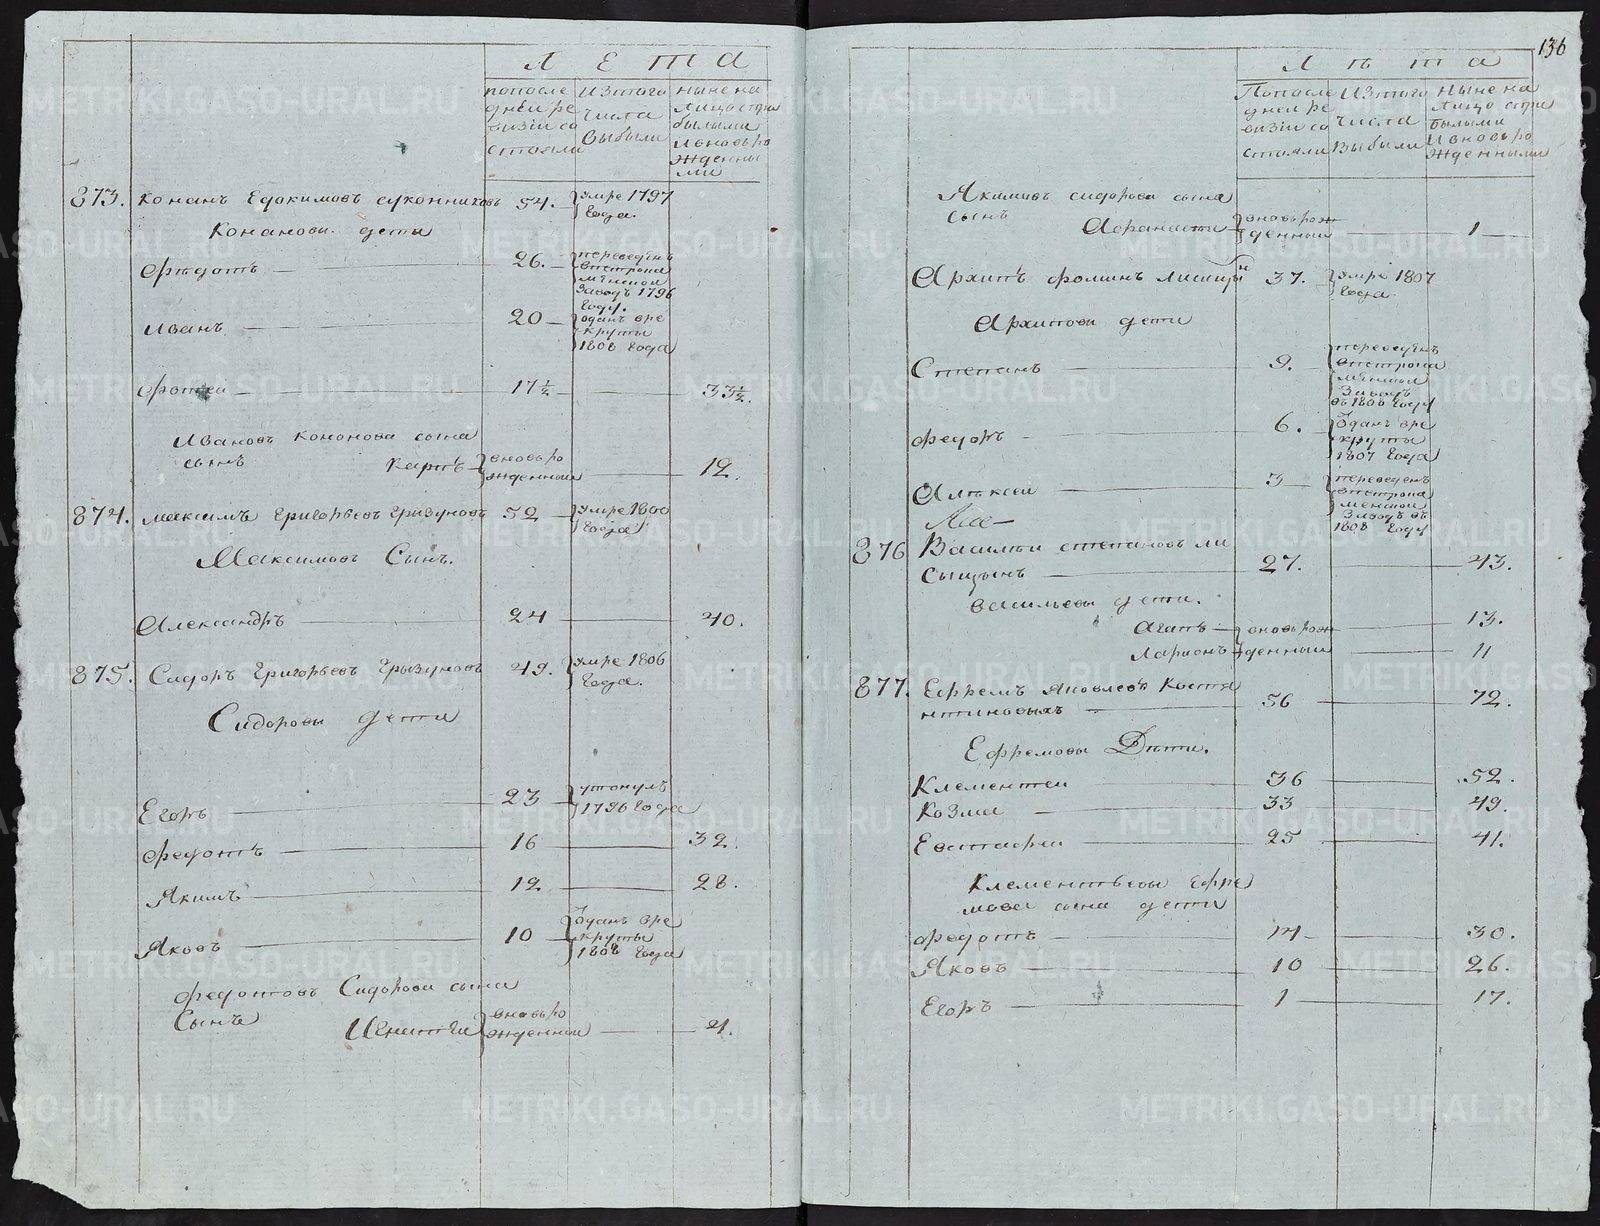 Лета
попоследней ревизии состояли
Изтого числа Выбыли
Ныне на лицо сприбылыми ивновьрожденными
873. Конанъ Едокимовъ суконниковъ 54. умре 1797 года.
Канановы дети
Федотъ 26. переведенъ впетрокаменской заводъ 1796 году.
Иванъ 20 отданъ вре круты 1808 года
Фотей 17½ 33½.
Ивановъ кононова сына
сынъ Карпъ вновьрожденныи 12.
874. Максимъ Григорьевъ Грызуновъ 52 умре 1800 года
Максимовъ Сынъ.
Александръ 24 40.
875. Сидоръ Григорьевъ Грызуновъ 49. умре 1806 года.
Сидоровы дети
Егоръ 23 утонулъ 1796 года
Федотъ 16 32.
Якимъ 12 28.
Яковъ 10 отданъ вре круты 1808 года
Федотовъ Сидорова сына
Сынъ Игнатеи вновьрожденныи 4.
136
Лѣта
Попоследней ревизии состояли
Изтого числа Выбыли
Ныне на лицо сприбылыми Ивновьрожденными
Якимовъ сидорова сына
сынъ Афанасеи вновьрожденныи 1
Архипъ фоминъ лисицын 37. умре 1807 года.
Архиповы дети
Степанъ 9. переведенъ впетрокаменской заводъ въ 1808 году
Федоръ 6. отданъ вре круты 1807 года
Алѣксеи 3 переведенъ впетрокаменской заводъ въ 1808 году
876 Василеи степановъ ли
сицынъ 27. 43.
Васильевы дети.
Агапъ вновьрож 13.
Ларионъ денныи 11
877. Ефремъ яковлевъ Костя
нтиновыхъ 56 72.
Ефремовы Дѣти.
Клементеи 36 52.
Козма 33 49.
Евстафеи 25 41.
Клементьевы Ефре
мова сына дети
Федотъ 14 30.
Яковъ 10 26.
Егоръ 1 17.
METRIKI.GASO-URAL.RU